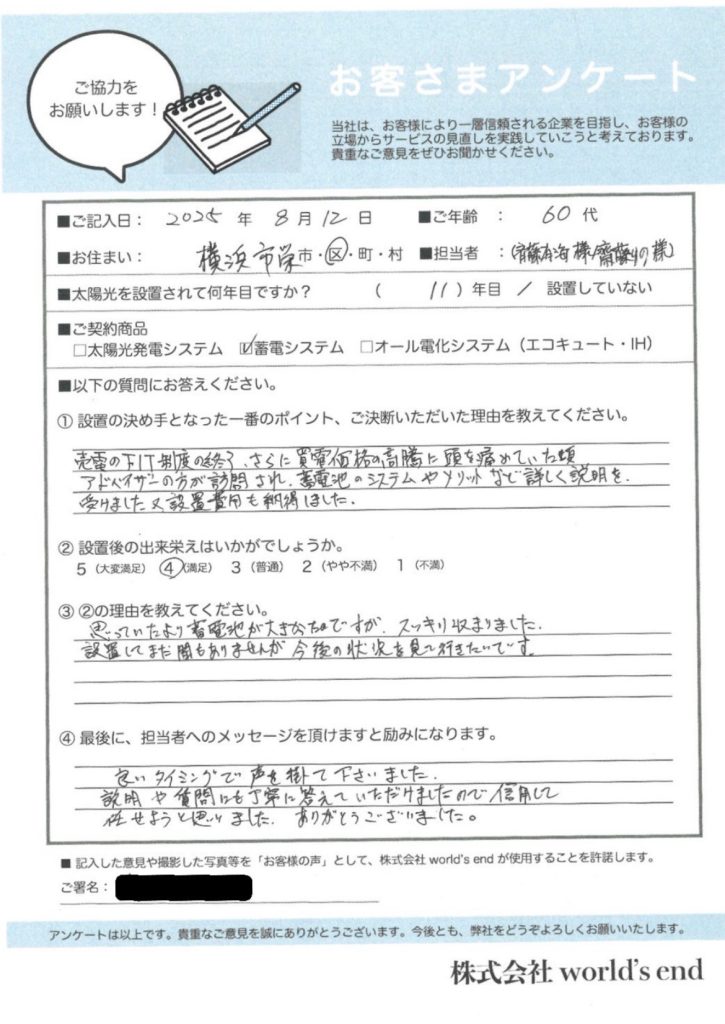 ご協力を
お願いします!
お客さまアンケート
当社は、お客様により一層信頼される企業を目指し、お客様の
立場からサービスの見直しを実践していこうと考えております。
貴重なご意見をぜひお聞かせください。
■ご記入日: 2025 年 8 月 12 日 ■ご年齢 : 60 代
■お住まい: 横浜市栄 市・区・町・村 ■担当者 : 様
■太陽光を設置されて何年目ですか? ( 11 ) 年目 / 設置していない
■ご契約商品
□太陽光発電システム ☑蓄電システム □オール電化システム(エコキュート・IH)
■以下の質問にお答えください。
① 設置の決め手となった一番のポイント、ご決断いただいた理由を教えてください。
売電のFIT制度の終了、さらに買電価格の高騰に頭を痛めていた頃
アドバイザーの方が訪問され、蓄電池のシステムやメリットなど詳しく説明を
受けました又設置費用も納得しました.
② 設置後の出来栄えはいかがでしょうか。
5(大変満足) ④(満足) 3(普通) 2(やや不満) 1(不満)
③ ②の理由を教えてください。
思っていたより蓄電池が大きかったですが、スッキリ収まりました.
設置してまだ間もありませんが今後の状況を見て行きたいです。
④ 最後に、担当者へのメッセージを頂けますと励みになります。
良いタイミングで声を掛て下さいました.
説明や質問にも丁寧に答えていただけましたので信用して
任せようと思いました. ありがとうございました。
■ 記入した意見や撮影した写真等を「お客様の声」として、株式会社 world's end が使用することを許諾します。
ご署名:
アンケートは以上です。貴重なご意見を誠にありがとうございます。今後とも、弊社をどうぞよろしくお願いいたします。
株式会社 world's end